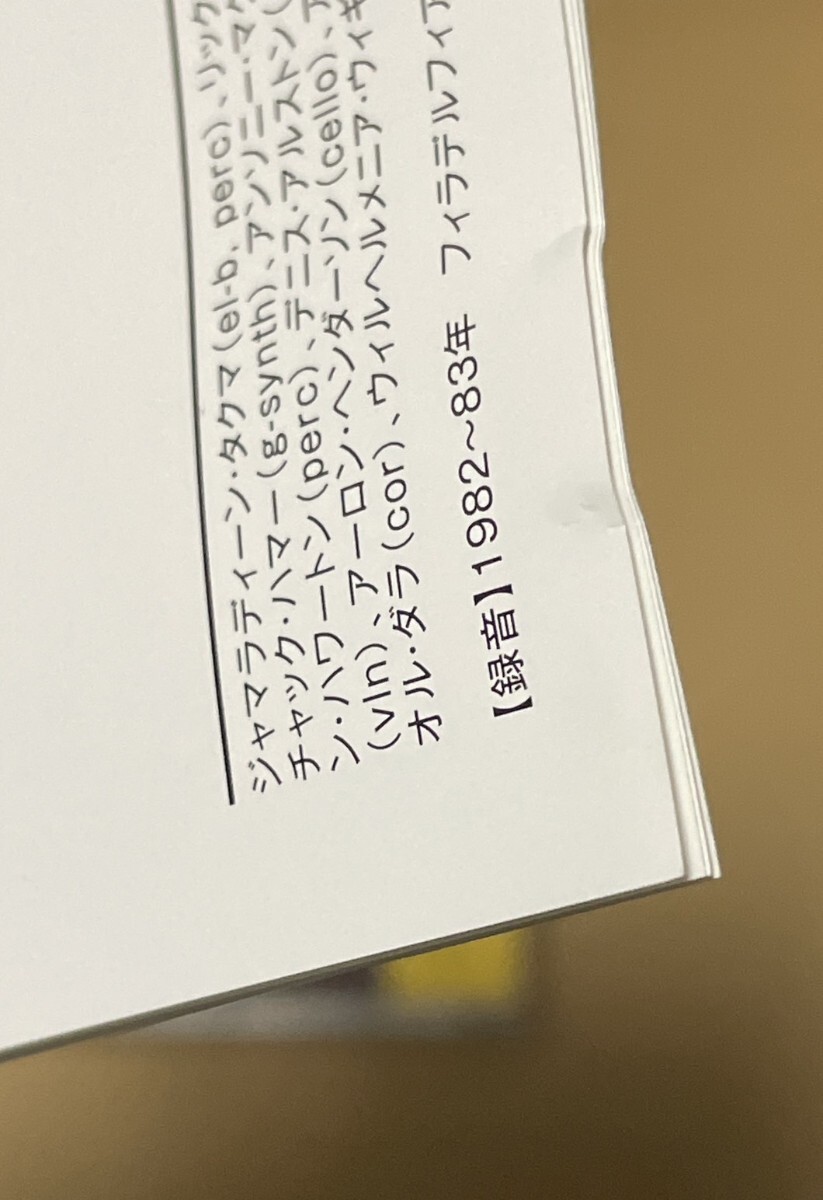 ジャマラディーン・タクマ(el-b, perc)、リック
チャック・ハマー(g-synth)、アンソニー・マク
ン・ハワートン(perc)、デニス・アルストン(
(vln)、アーロン・ヘンダーソン(cello)、ア
オル・ダラ(cor)、ウィルヘルメニア・ウィギ
【録音】1982~83年 フィラデルフィア